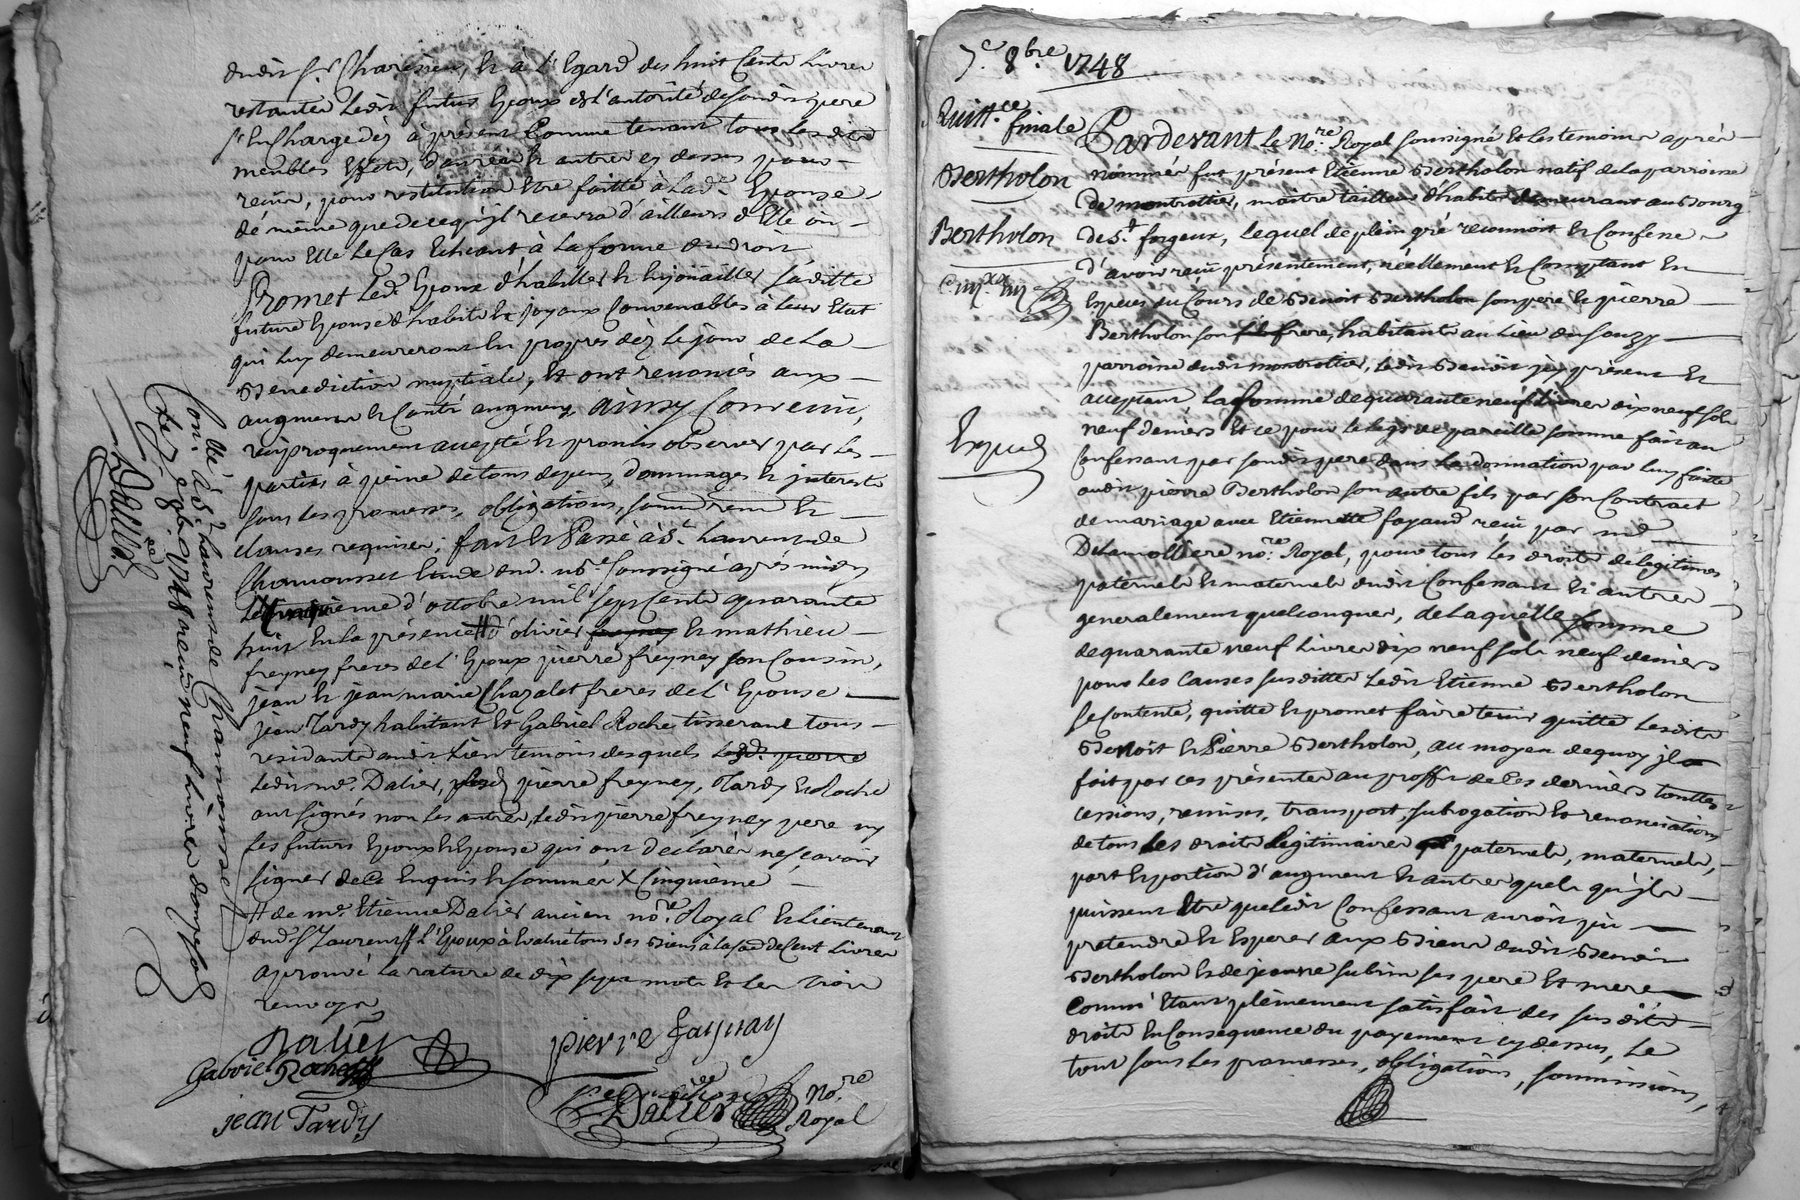 dudit Sr. Charésieu, & a l'Egard des huit Cents Livres
restantes Ledit futur Epoux de l'autorité de sondit pere
s'En Charge dés à présent Comme tenant tous lesdits
meubles Effets, danrées & autres cy dessus pour
reçus, pour restitution Etre faitte à Lade. Epouse
de même que de ce qu'jl recevra d'ailleurs d'Elle ou
pour Elle Le Cas Echeant à La forme du droit
Promet Ledt. Epoux d'habiller & Enjoüailler saditte
future Epouse d'habits & joyaux Convenables à leur Etat
qui Luy demeureront En propres déz Le jour de La
Benediction nuptiale, Et ont renoncés aux
augment & Contr'augment, ainsy Convenu,
réciproquement accepté & promis observer par Les
parties à peine de tous depens, dommages & interests
sous Les promesses, obligations, soumissions &
clauses requises; fait & Passé à St. Laurent de
Chamousset Etude dud. no.re soussigné après midy
d'octobre mil sept Cents quarante
huit En la présence # d'olivier freyney & mathieu
freyney freres de l'Epoux pierre freyney son Cousin,
jean & jean marie Chazalet freres de l'Epouse
jean Tardy habitant Et Gabriel Roche tisserand tous
residants audit Lieu temoins desquels Lesd. pierre
Ledit me. Dalier, pierre freyney, Tardy & Roche
ont signés non Les autres, Ledit pierre freyney pere ny
Les futurs Epoux & Epouse qui ont declarés ne sçavoir
signer de ce Enquis & sommés X Cinquieme
# de me. Etienne Dalier ancien no.re Royal & Lieutenant
dud St Laurent # L'Epoux à Evalué tous ses Biens à la so. de Cent Livres
aprouvé la rature de dix sept mots Et les trois
renvoys
Dalier
pierre faynay
Gabriel Roche
jean Tardy
Dalier No.re
Royal
Con.llé à St. Laurent de Chamousset
Le 7e 8bre 1748 reçu neuf Livres douze sols
Dallier
7e. 8bre 1748
Quitt.ce
finale
Bertholon
Bertholon
Expedi
Pardevant Le No.re Royal soussigné Et Les temoins aprés
nommés fut présent Etienne Bertholon natif de La parroisse
de montrottier, maitre tailleur d'habits demeurant au Bourg
de St. forgeux, Lequel de plein gré reconnoit & Confesse
d'avoir reçu présentement, réellement & Comptant En
Especes du Cours de Benoit Bertholon son pere & pierre
Bertholon son fils frere, habitants au Lieu du Souzy
parroisse dudit montrottier, Ledit Benoit jcy présent Et
acceptant La somme de quarante neuf Livres dix neuf sols
neuf deniers Et ce pour Le legs de pareille somme fait au
Confessant par sondit pere dans La donnation par Luy faitte
audit pierre Bertholon son autre fils par son Contract
de mariage avec Etiennette fayard reçu par me
Delamolliere no.re Royal, pour tous Les droits de legitimes
paternels & maternels dudit Confessant & autres
generalement quelconques, de Laquelle somme
de quarante neuf Livres dix neuf sols neuf deniers
pour Les Causes susdittes Ledit Etienne Bertholon
se Contente, quitte & promet faire tenir quitte Lesdits
Benoit & Pierre Bertholon, au moyen de quoy jl a
fait par ces présentes au proffit de Ces derniers touttes
cessions, remises, transport, subrogation Et renonciations
de tous Les droits Legitimaires paternels, maternels,
part & portion d'augment & autres quels qu'jls
puissent Etre que Ledit Confessant auroit pu
pretendre & Esperer aux Biens dudit Benoit
Bertholon & de jeanne subrin ses pere Et mere
Comme Etant pleinement satisfait des susdits
droits En Consequence du payement cy dessus, Le
tout sous Les promesses, obligations, soumissions,